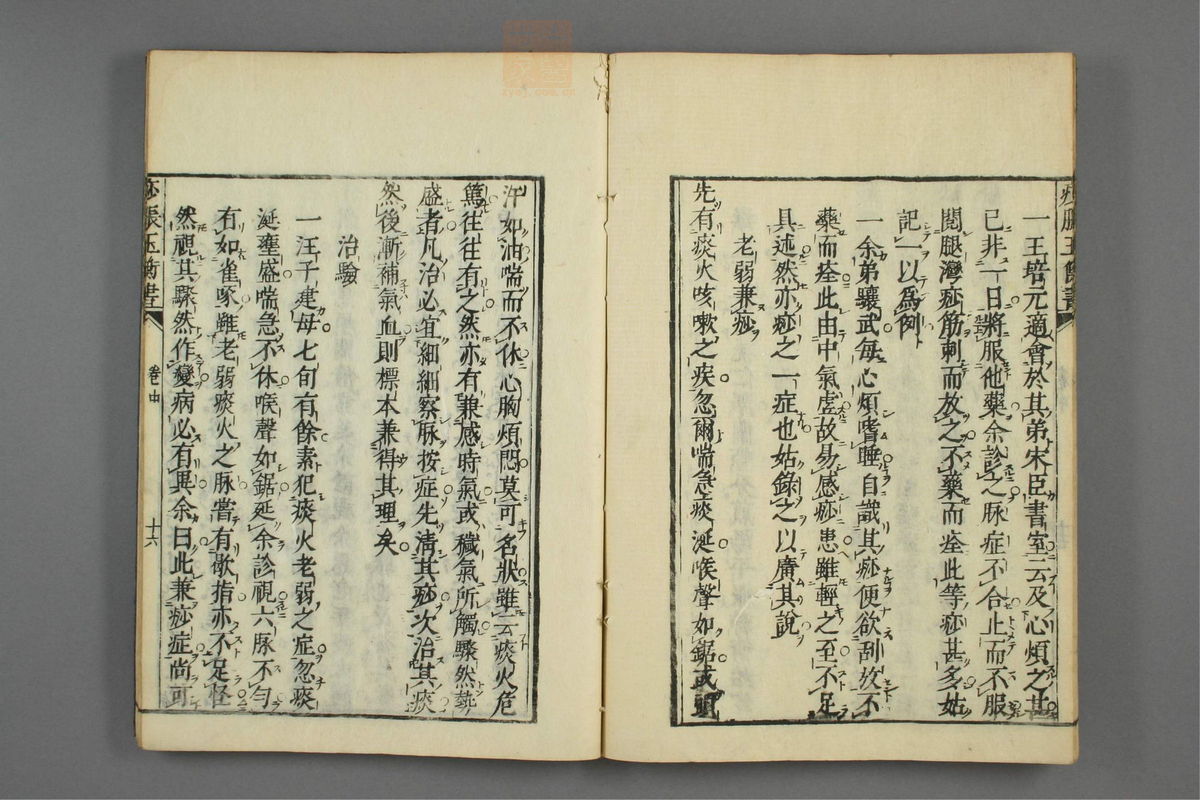 一王培元適會於其弟宋臣書室云及心煩之甚
已非一日將服他藥余診之脉症不合止而不服
閱腿灣痧筋刺而放之不藥而痊此等痧甚多姑
記一以爲例
一余弟驤武每心煩嗜睡自識其痧便欲刮放不
藥而痊此由中氣虚故易感痧患雖輕之至不足
具述然亦痧之一症也姑錄之以廣其說
老弱兼痧
先有痰火咳嗽之疾忽爾喘急痰涎喉聲如鋸或頭
汗如油喘而不休心胸煩悶莫可名狀雖云痰火危
篤往往有之然亦有兼感時氣或穢氣所觸驟然勢
盛者凡治必宜細細察脉按症先清其痧次治其痰
然後漸補氣血則標本兼得其理矣
治驗
一汪子建母七旬有餘素犯痰火老弱之症忽痰
涎壅盛喘急不休喉聲如鋸延余診視六脉不勻
有如雀啄雖老弱痰火之脉嘗有歇指亦不足怪
然視其驟然作變病必有異余曰此兼痧症尚可
痧脹玉衡書
卷中
十六